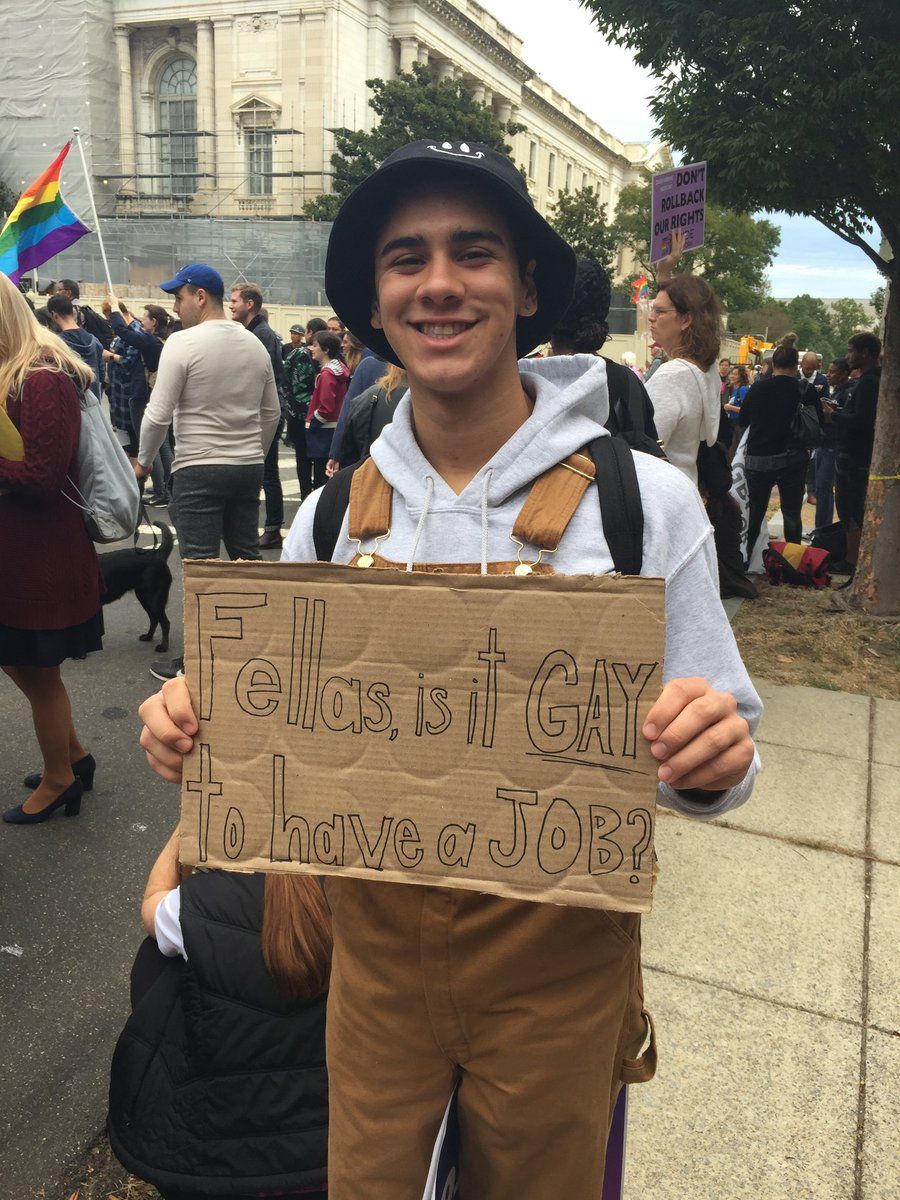 DON'T
ROLLBACK
OUR RIGHTS
Fellas, is it GAY
to have a JOB?